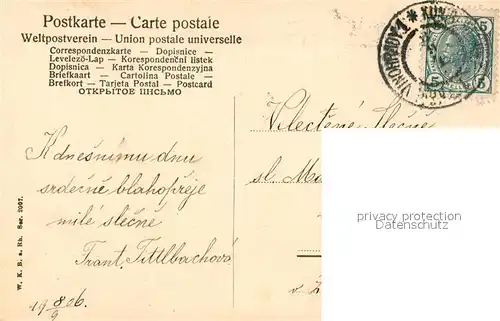 Postkarte — Carte postale
Weltpostverein — Union postale universelle
Correspondenzkarte — Dopisnice
Levelező-Lap — Korespondenční listek
Dopisnica — Karta Korespondenzyjna
Briefkaart — Cartolina Postale
Brefkort — Tarjeta Postal — Postcard
ОТКРЫТОЕ ПИСЬМО
VINOHRADY 1
5 5
Velectěné Slečně
sl. Ma
v
K dnešnímu dnu
srdečně blahopřeje
milé slečně
Frant. Tittlbachová
19 8/9 06.
W. K. B. a. Rh. Ser. 2097.
privacy protection
Datenschutz